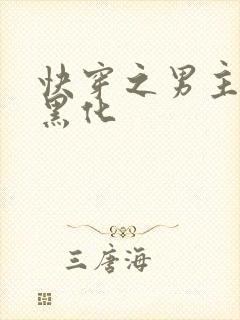 快穿之男主
黑化
三唐海